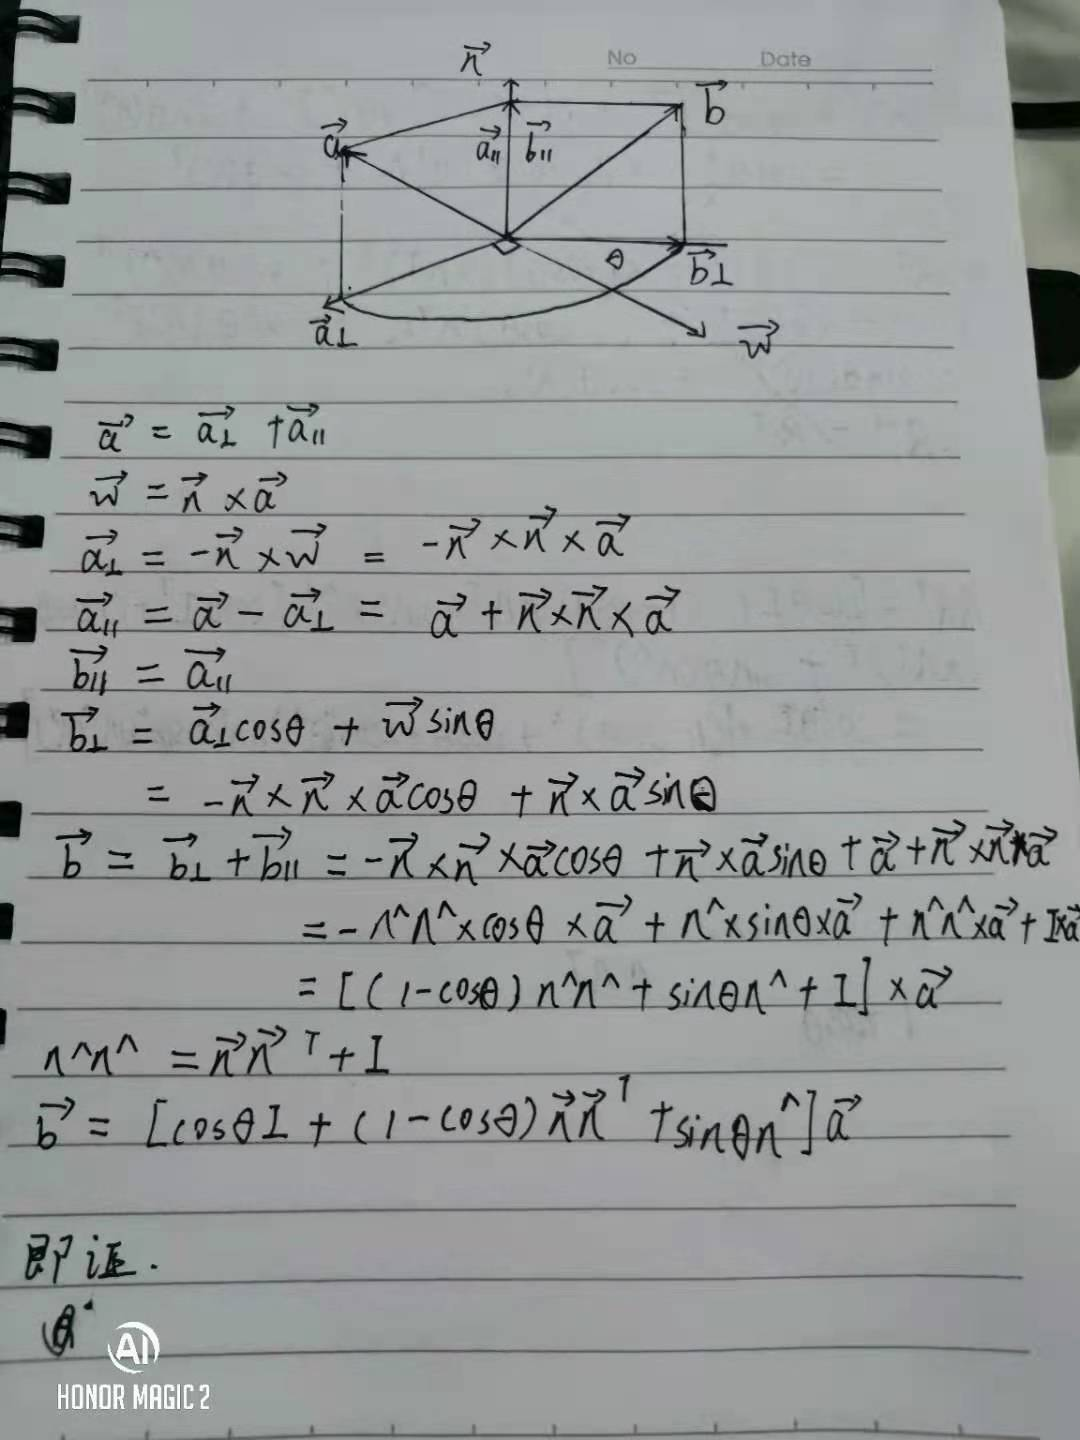 No Date
n⃗
b⃗
a⃗ a⃗∥ b⃗∥
θ b⃗⊥
a⃗⊥ w⃗
a⃗ = a⃗⊥ + a⃗∥
w⃗ = n⃗ × a⃗
a⃗⊥ = -n⃗ × w⃗ = -n⃗ × n⃗ × a⃗
a⃗∥ = a⃗ - a⃗⊥ = a⃗ + n⃗ × n⃗ × a⃗
b⃗∥ = a⃗∥
b⃗⊥ = a⃗⊥ cosθ + w⃗ sinθ
= -n⃗ × n⃗ × a⃗ cosθ + n⃗ × a⃗ sinθ
b⃗ = b⃗⊥ + b⃗∥ = -n⃗ × n⃗ × a⃗ cosθ + n⃗ × a⃗ sinθ + a⃗ + n⃗ × n⃗ × a⃗
= -n^n^ × cosθ × a⃗ + n^ × sinθ × a⃗ + n^n^ × a⃗ + I × a⃗
= [(1-cosθ) n^n^ + sinθ n^ + I] × a⃗
n^n^ = n⃗ n⃗ᵀ + I
b⃗ = [cosθ I + (1-cosθ) n⃗ n⃗ᵀ + sinθ n^] a⃗
即证.
AI
HONOR MAGIC 2